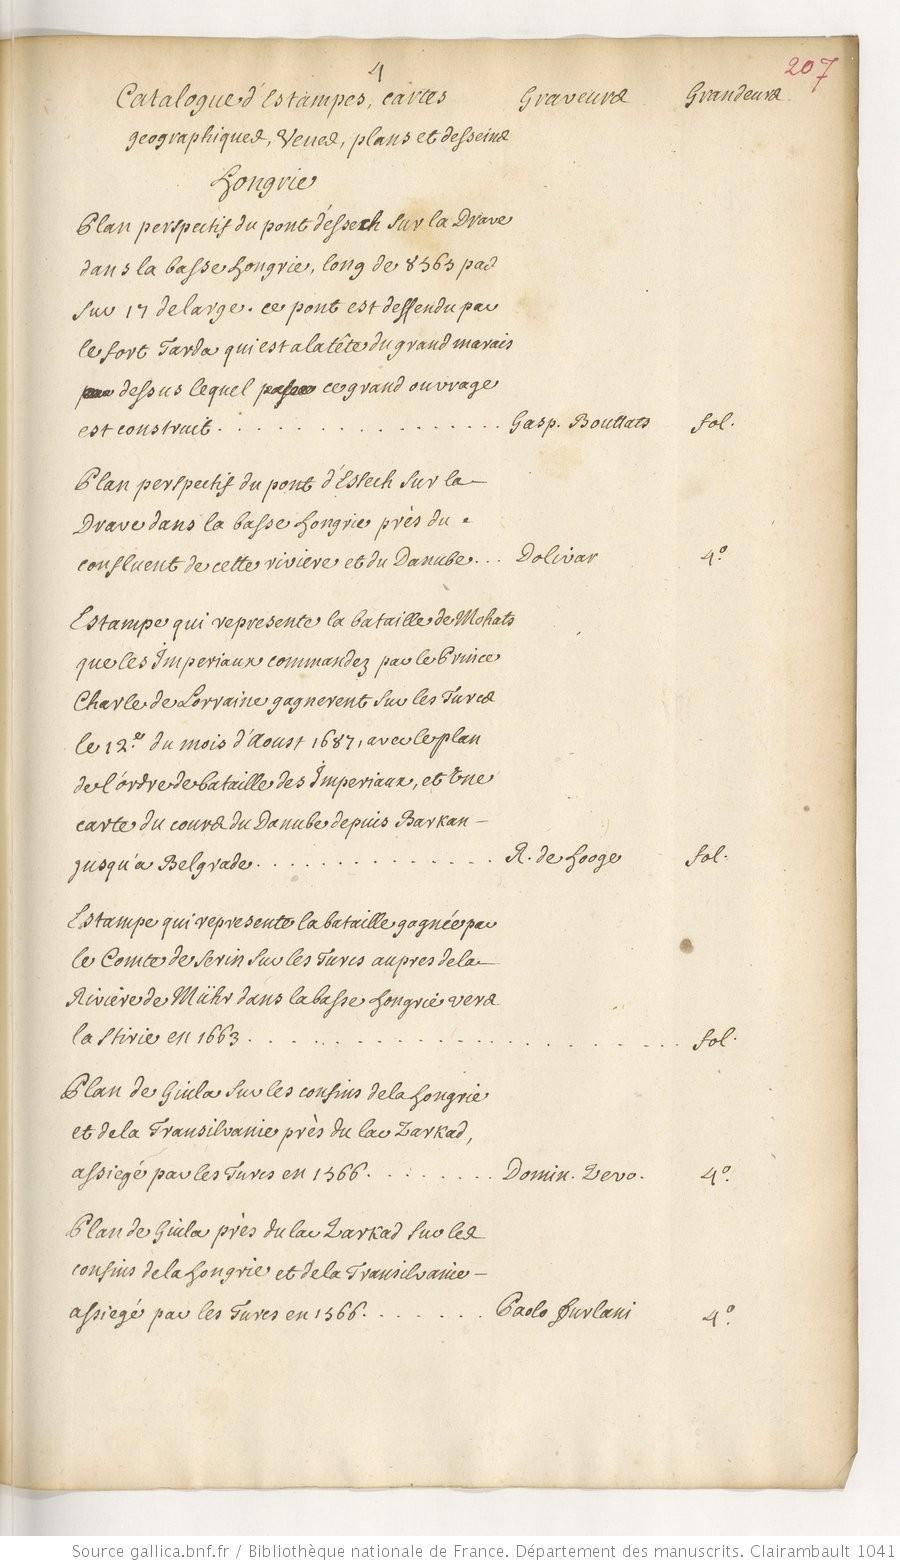 4
207
Catalogue d'Estampes, cartes Graveurs Grandeurs
geographiques, Veues, plans et desseins
Hongrie
Plan perspectif du pont d'essech sur la Drave
dans la basse Hongrie, long de 8565 pas
sur 17 de large. ce pont est deffendu par
le fort Tarda qui est a la tête du grand marais
dessus lequel ce grand ouvrage
est construit . . . . . . . . . . . . . . . . Gasp. Bouttats fol.
Plan perspectif du pont d'Essech sur la
Drave dans la basse Hongrie près du
confluent de cette riviere et du Danube . . . Dolivar 4.º
Estampe qui represente la bataille de Mohats
que les Imperiaux commandez par le Prince
Charle de Lorraine gagnerent sur les Turcs
le 12.e du mois d'Aoust 1687, avec le plan
de l'ordre de bataille des Imperiaux, et Une
carte du cours du Danube depuis Barkan
jusqu'a Belgrade . . . . . . . . . . . . . R. de Hooge fol.
Estampe qui represente la bataille gagnée par
le Comte de Serin sur les Turcs aupres de la
Riviere de Mühr dans la basse Hongrie vers
la Stirie en 1663 . . . . . . . . . . . . . . . . fol.
Plan de Giula sur les confins de la Hongrie
et de la Transilvanie près du lac Zarkad,
assiegé par les Turcs en 1566 . . . . . . . Domin. Zeno. 4.º
Plan de Giula près du lac Zarkad sur les
confins de la Hongrie et de la Transilvanie
assiegé par les Turcs en 1566 . . . . . . . Paolo Furlani 4.º
Source gallica.bnf.fr / Bibliothèque nationale de France. Département des manuscrits. Clairambault 1041